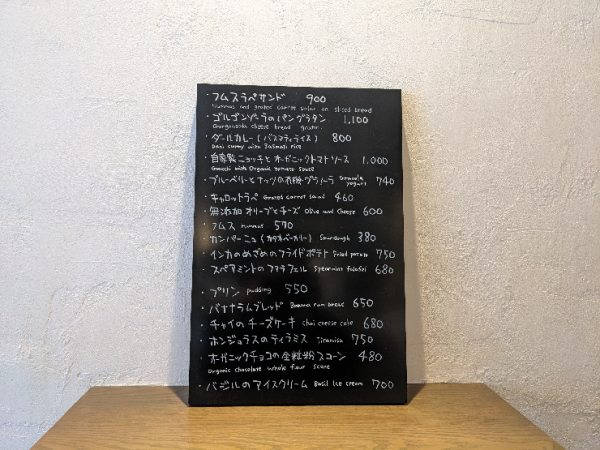 ・フムスラペサンド 900
Hummus and grated carrot salad on sliced bread
・ゴルゴンゾーラのパングラタン 1,100
Gorgonzola cheese bread gratin.
・ダールカレー(バスマティライス) 800
Dahl curry with Basmati rice
・自家製ニョッキとオーガニックトマトソース 1,000
Gnocchi with Organic tomato sauce
・ブルーベリーとナッツの グラノーラ Granola yogurt 740
・キャロットラペ Grated carrot salad 460
・無添加オリーブとチーズ Olive and Cheese 600
・フムス Hummus 570
・カンパーニュ(カタネベーカリー) Sourdough 380
・インカのめざめのフライドポテト fried potato 750
・スペアミントのファラフェル Spearmint falafel 680
・プリン pudding 550
・バナナラムブレッド Banana rum bread 650
・チャイのチーズケーキ chai cheese cake 680
・ボンジョラスのティラミス tiramisu 750
・オーガニックチョコの全粒粉スコーン 480
Organic chocolate whole flour scone
・バジルのアイスクリーム Basil Ice cream 700